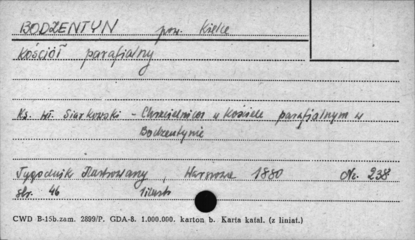 BODZENTYN pow. Kielce
kościół parafialny
Ks. Wł. Siarkowski - Chrzcielnica w kościele parafjalnym w
Bodzentynie
Tygodnik Ilustrowany, Warszawa 1880 Nr. 238
str. 46 1 ilustr.
CWD B-15b. zam. 2899/P. GDA-8. 1.000.000. karton b. Karta katal. (z liniat.)